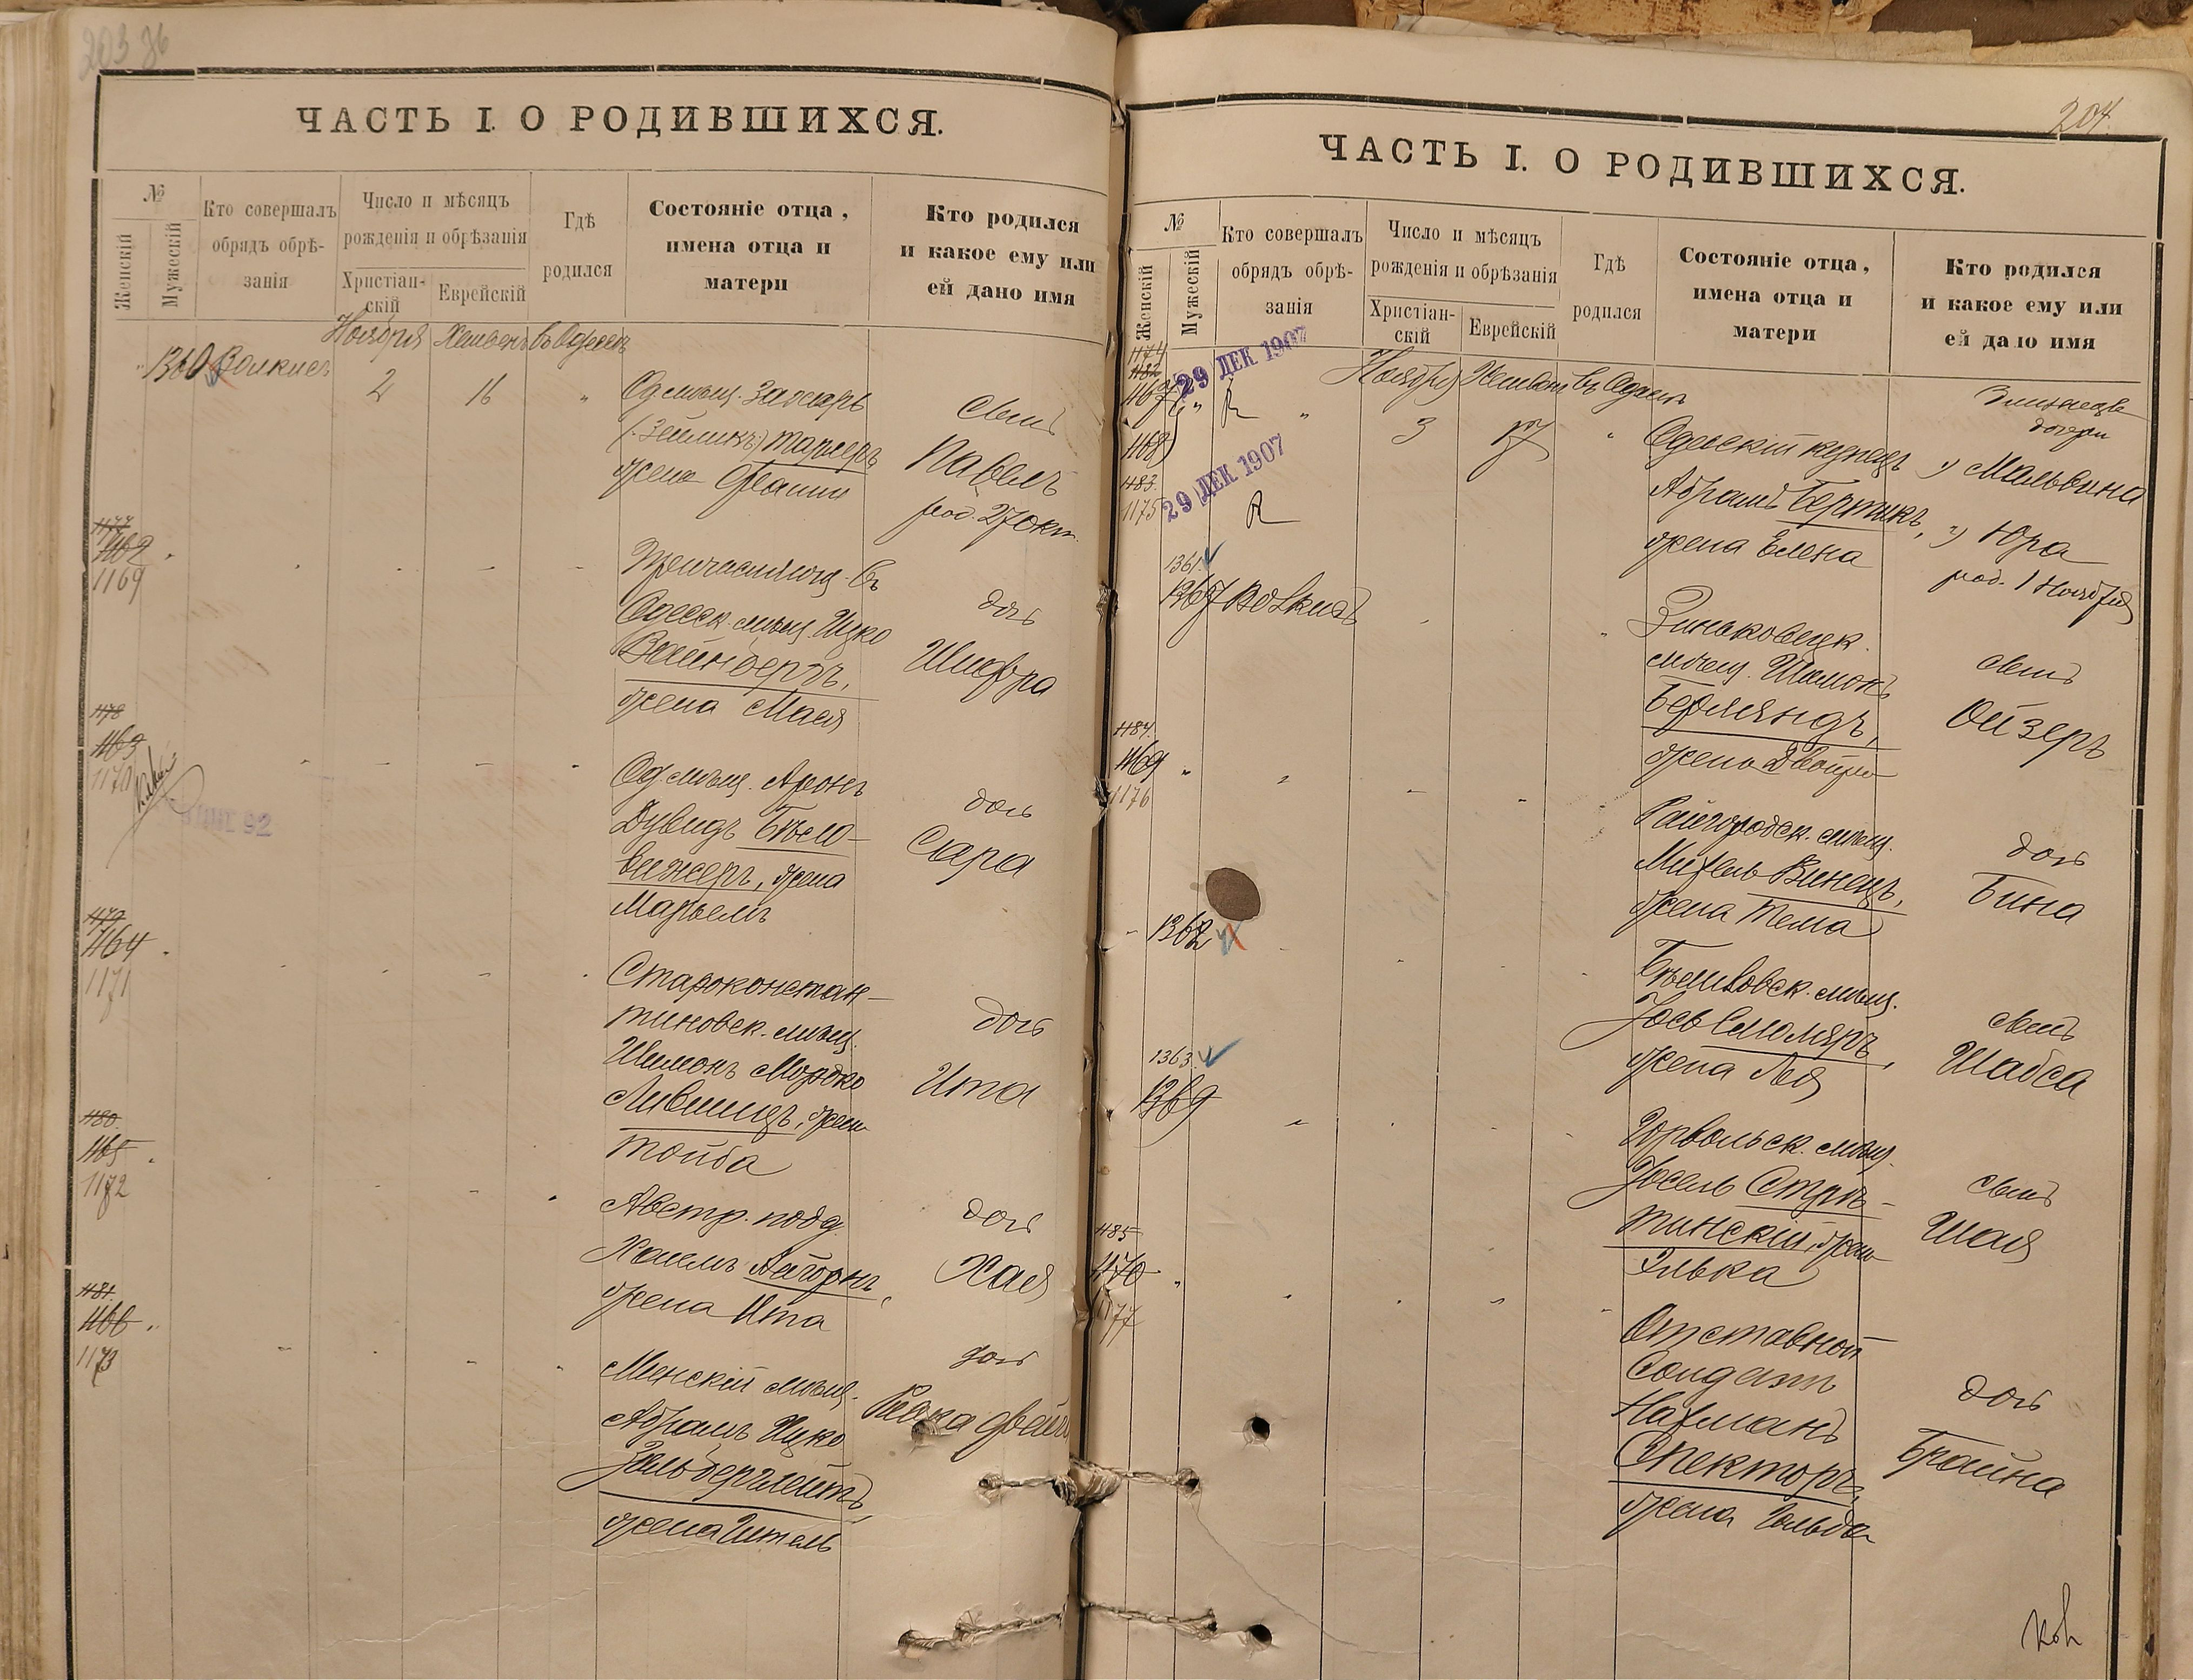 203 об
ЧАСТЬ I. О РОДИВШИХСЯ.
№
Женскій
Мужескій
Кто совершалъ
обрядъ обрѣ-
занія
Число и мѣсяцъ
рожденія и обрѣзанія
Христіан-
скій
Еврейскій
Гдѣ
родился
Состояніе отца,
имена отца и
матери
Кто родился
и какое ему или
ей дано имя
Ноября Хешвонъ въ Одессѣ
1360 Волкисъ
2 16 "
Од. мѣщ. Захарь
(Зейликъ) Тарлеръ
жена Фанни
сынъ
Павелъ
род. 27 окт.
1177
1162
1169
Одесск. мѣщ. Ицко
Вайнбергъ,
жена Мася
дочь
Шифра
1178
1163
1170
92
Од. мѣщ. Аронъ
Дувидъ Бѣло-
вежеръ, жена
Марьемъ
дочь
Сара
1179
1164
1171
Староконстан-
тиновск. мѣщ.
Шимонъ Мордко
Лившицъ, жена
Тойба
дочь
Ита
1180.
1165
1172
Австр. подд.
Хаимъ
жена Ита
дочь
Хая
1181.
1166
1173
Минскій мѣщ.
Абрамъ Ицко
Зильберглейтъ,
жена Ителъ
дочь
Ривка Двейра
204.
ЧАСТЬ I. О РОДИВШИХСЯ.
№
Женскій
Мужескій
Кто совершалъ
обрядъ обрѣ-
занія
Число и мѣсяцъ
рожденія и обрѣзанія
Христіан-
скій
Еврейскій
Гдѣ
родился
Состояніе отца,
имена отца и
матери
Кто родился
и какое ему или
ей дано имя
1174
1182
1167
1168
1183.
1175
29 ДЕК 1907
29 ДЕК 1907
Ноября Хешвонъ въ Одессѣ
3 17 "
Одесскій купецъ
Абрамъ Бертикъ,
жена Елена
Близнецы
дочери
1) Мальвина
2) Юра
род. 1 Ноября
1361
1367 Волкисъ
Зиньковецк.
мѣщ. Шимонъ
Берляндъ,
жена Двойра
сынъ
Ойзеръ
1184.
1169
1176
Райгородск. мѣщ.
Михель Винецъ,
жена Тема
дочь
Бина
1362
Бѣлиловск. мѣщ.
Іось Смоляръ,
жена Лея
сынъ
Шабса
1363
1369
Горвольск. мѣщ.
Іосель Стря-
тинскій, жена
Элька
сынъ
Шая
1185
1170
1177
Отставной
Солдатъ
Нахманъ
Спекторъ,
жена Гольда
дочь
Брайна